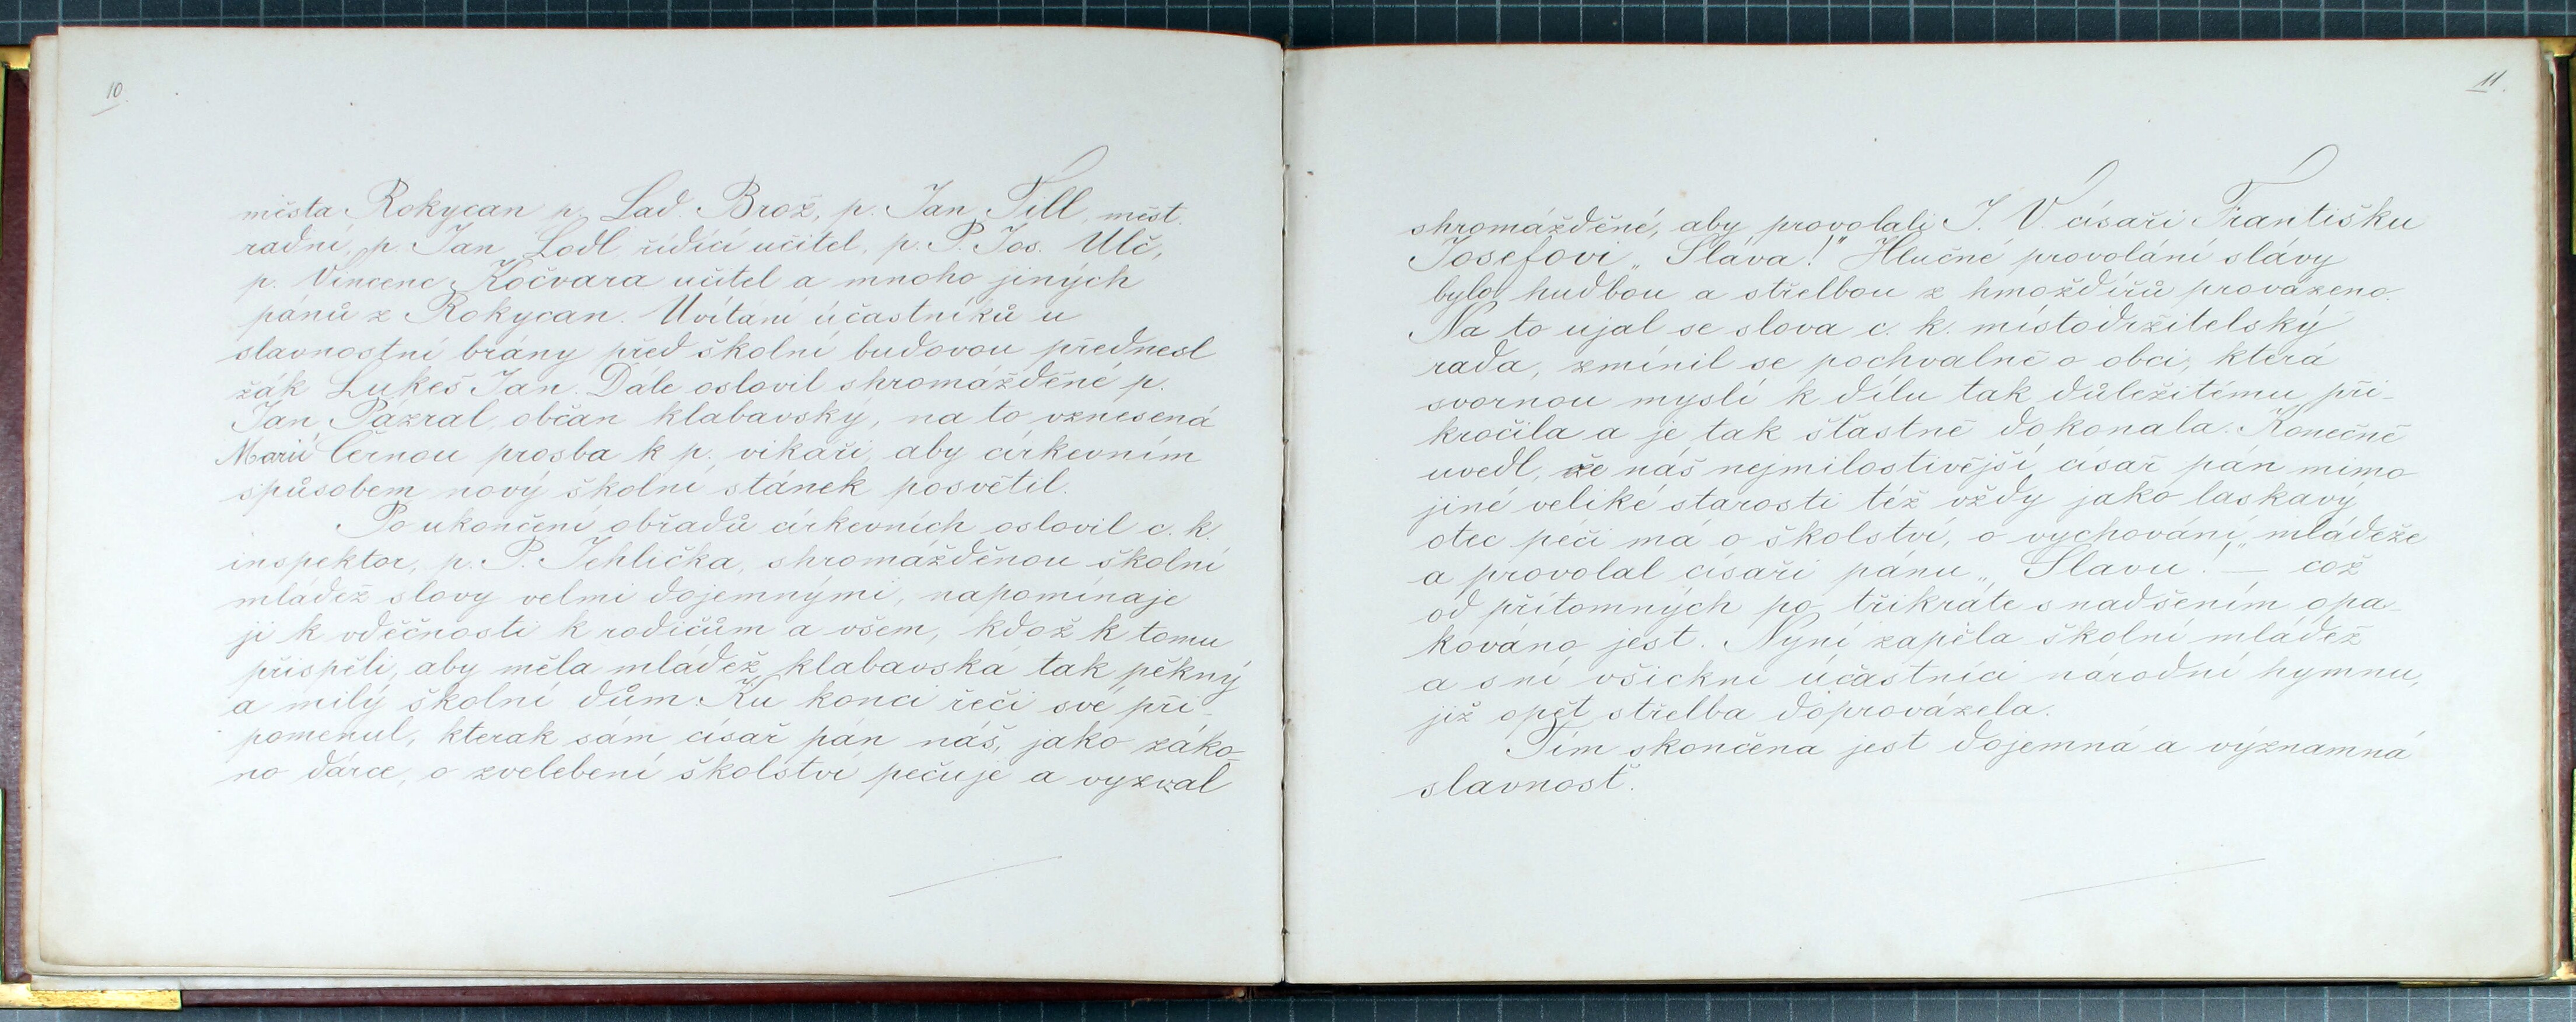 10.
města Rokycan p. Lad. Brož, p. Jan Till, měst.
radní, p. Jan Lodl řídící učitel, p. P. Jos. Ulč,
p. Vincenc Kočvara učitel a mnoho jiných
pánů z Rokycan. Uvítání účastníků u
slavnostní brány před školní budovou přednesl
žák Lukeš Jan. Dále oslovil shromážděné p.
Jan Pazral, občan klabavský, na to vznesená
Marií Černou prosba k p. vikáři, aby církevním
spůsobem nový školní stánek posvětil.
Po ukončení obřadů církevních oslovil c. k.
inspektor, p. P. Jehlička, shromážděnou školní
mládež slovy velmi dojemnými, napomínaje
ji k vděčnosti k rodičům a všem, kdož k tomu
přispěli, aby měla mládež klabavská tak pěkný
a milý školní dům. Ku konci řeči své při-
pomenul, kterak sám císař pán náš, jako záko-
no dárce, o zvelebení školství pečuje a vyzval
11.
shromážděné, aby provolali J. V. císaři Františku
Josefovi „Sláva!" Hlučné provolání slávy
bylo hudbou a střelbou z hmoždířů provázeno.
Na to ujal se slova c. k. místodržitelský
rada, zmínil se pochvalně o obci, která
svornou myslí k dílu tak důležitému při-
kročila a je tak šťastně dokonala. Konečně
uvedl, že náš nejmilostivější císař pán mimo
jiné veliké starosti též vždy jako laskavý
otec péči má o školství, o vychování mládeže
a provolal císaři pánu „Slavu!" — což
od přítomných po třikráte s nadšením opa-
kováno jest. Nyní zapěla školní mládež
a s ní všickni účastníci národní hymnu,
již opět střelba doprovázela.
Tím skončena jest dojemná a významná
slavnosť.